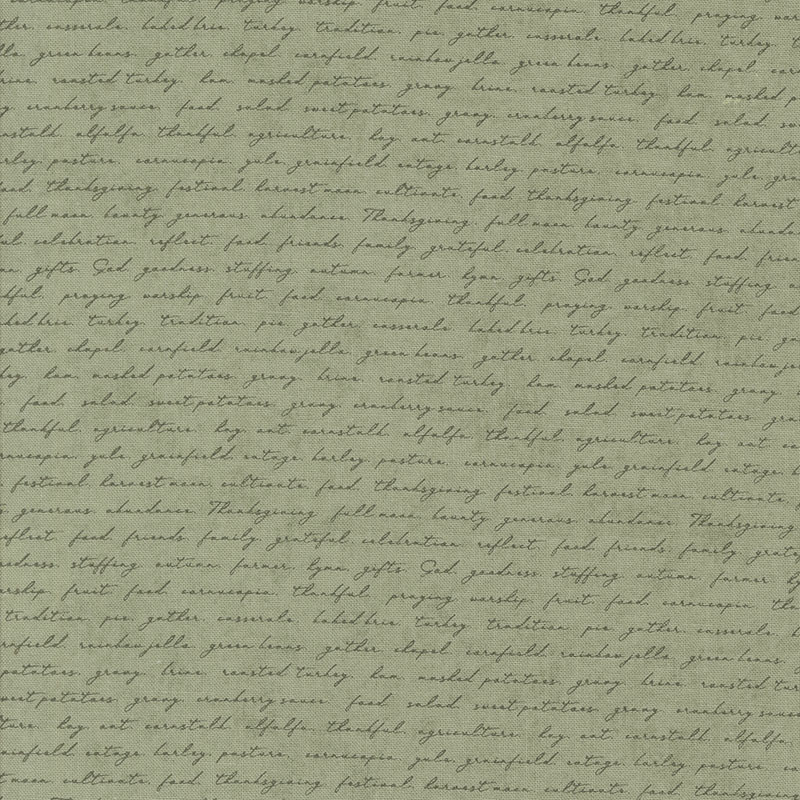 cornucopia. thankful. praying worship fruit. food. cornucopia. thankful. praying. wor
ther. casserole. baked brie. turkey. tradition. pie. gather. casserole. baked brie. turkey. t
lla. green beans. gather. chapel. cornfield. rainbow jello. green beans. gather. chapel. cor
brine. roasted turkey. ham. mashed potatoes. gravy. brine. roasted turkey. ham. mashed p
y. cranberry sauce. food. salad. sweet potatoes. gravy. cranberry sauce. food. salad. sw
nstalk. alfalfa. thankful. agriculture. hay. oat. cornstalk. alfalfa. thankful. agricult
rley. pasture. cornucopia. yule. grainfield. cotage. barley. pasture. cornucopia. yule. gra
ood. thanksgiving. festival. harvest moon. cultivate. food. thanksgiving. festival. harvest
full moon. bounty generous abundance. Thanksgiving. full moon. bounty generous abunda
ul. celebration. reflect. food. friends. family. grateful. celebration. reflect. food. frien
nn. gifts. God. goodness. stuffing. autumn. farmer. hymn. gifts. God. goodness. stuffing. a
kful. praying worship fruit food. cornucopia. thankful. praying. worship. fruit food
ked brie. turkey. tradition. pie. gather. casserole. baked brie. turkey. tradition. pie. ga
gather. chapel. cornfield. rainbow jello. green beans. gather. chapel. cornfield. rainbow je
key. ham. mashed potatoes. gravy. brine. roasted turkey. ham. mashed potatoes. gravy.
food. salad. sweet potatoes. gravy. cranberry sauce. food. salad. sweet potatoes. gra
thankful. agriculture. hay. oat. cornstalk. alfalfa. thankful. agriculture. hay. oat. co
rnucopia. yule. grainfield. cotage. barley. pasture. cornucopia. yule. grainfield. cotage. b
festival. harvest moon. cultivate. food. thanksgiving. festival. harvest moon. cultivate.
generous abundance. Thanksgiving full moon. bounty generous abundance. Thanksgiving
eflect. food. friends. family. grateful. celebration. reflect. food. friends. family. grate
odness. stuffing. autumn. farmer. hymn. gifts. God. goodness. stuffing. autumn. farmer. hy
orship. fruit. food. cornucopia. thankful. praying worship. fruit. food. cornucopia. tha
tradition. pie. gather. casserole. baked brie. turkey. tradition. pie. gather. casserole. b
rnfield. rainbow jello. green beans. gather. chapel. cornfield. rainbow jello. green beans.
potatoes. gravy. brine. roasted turkey. ham. mashed potatoes. gravy. brine. roasted tur
weet potatoes. gravy. cranberry sauce. food. salad. sweet potatoes. gravy. cranberry sauce
ture. hay. oat. cornstalk. alfalfa. thankful. agriculture. hay. oat. cornstalk. alfalfa.
ainfield. cotage. barley. pasture. cornucopia. yule. grainfield. cotage. barley. pasture. co
t moon. cultivate. food. thanksgiving. festival. harvest moon. cultivate. food. thanksgiving